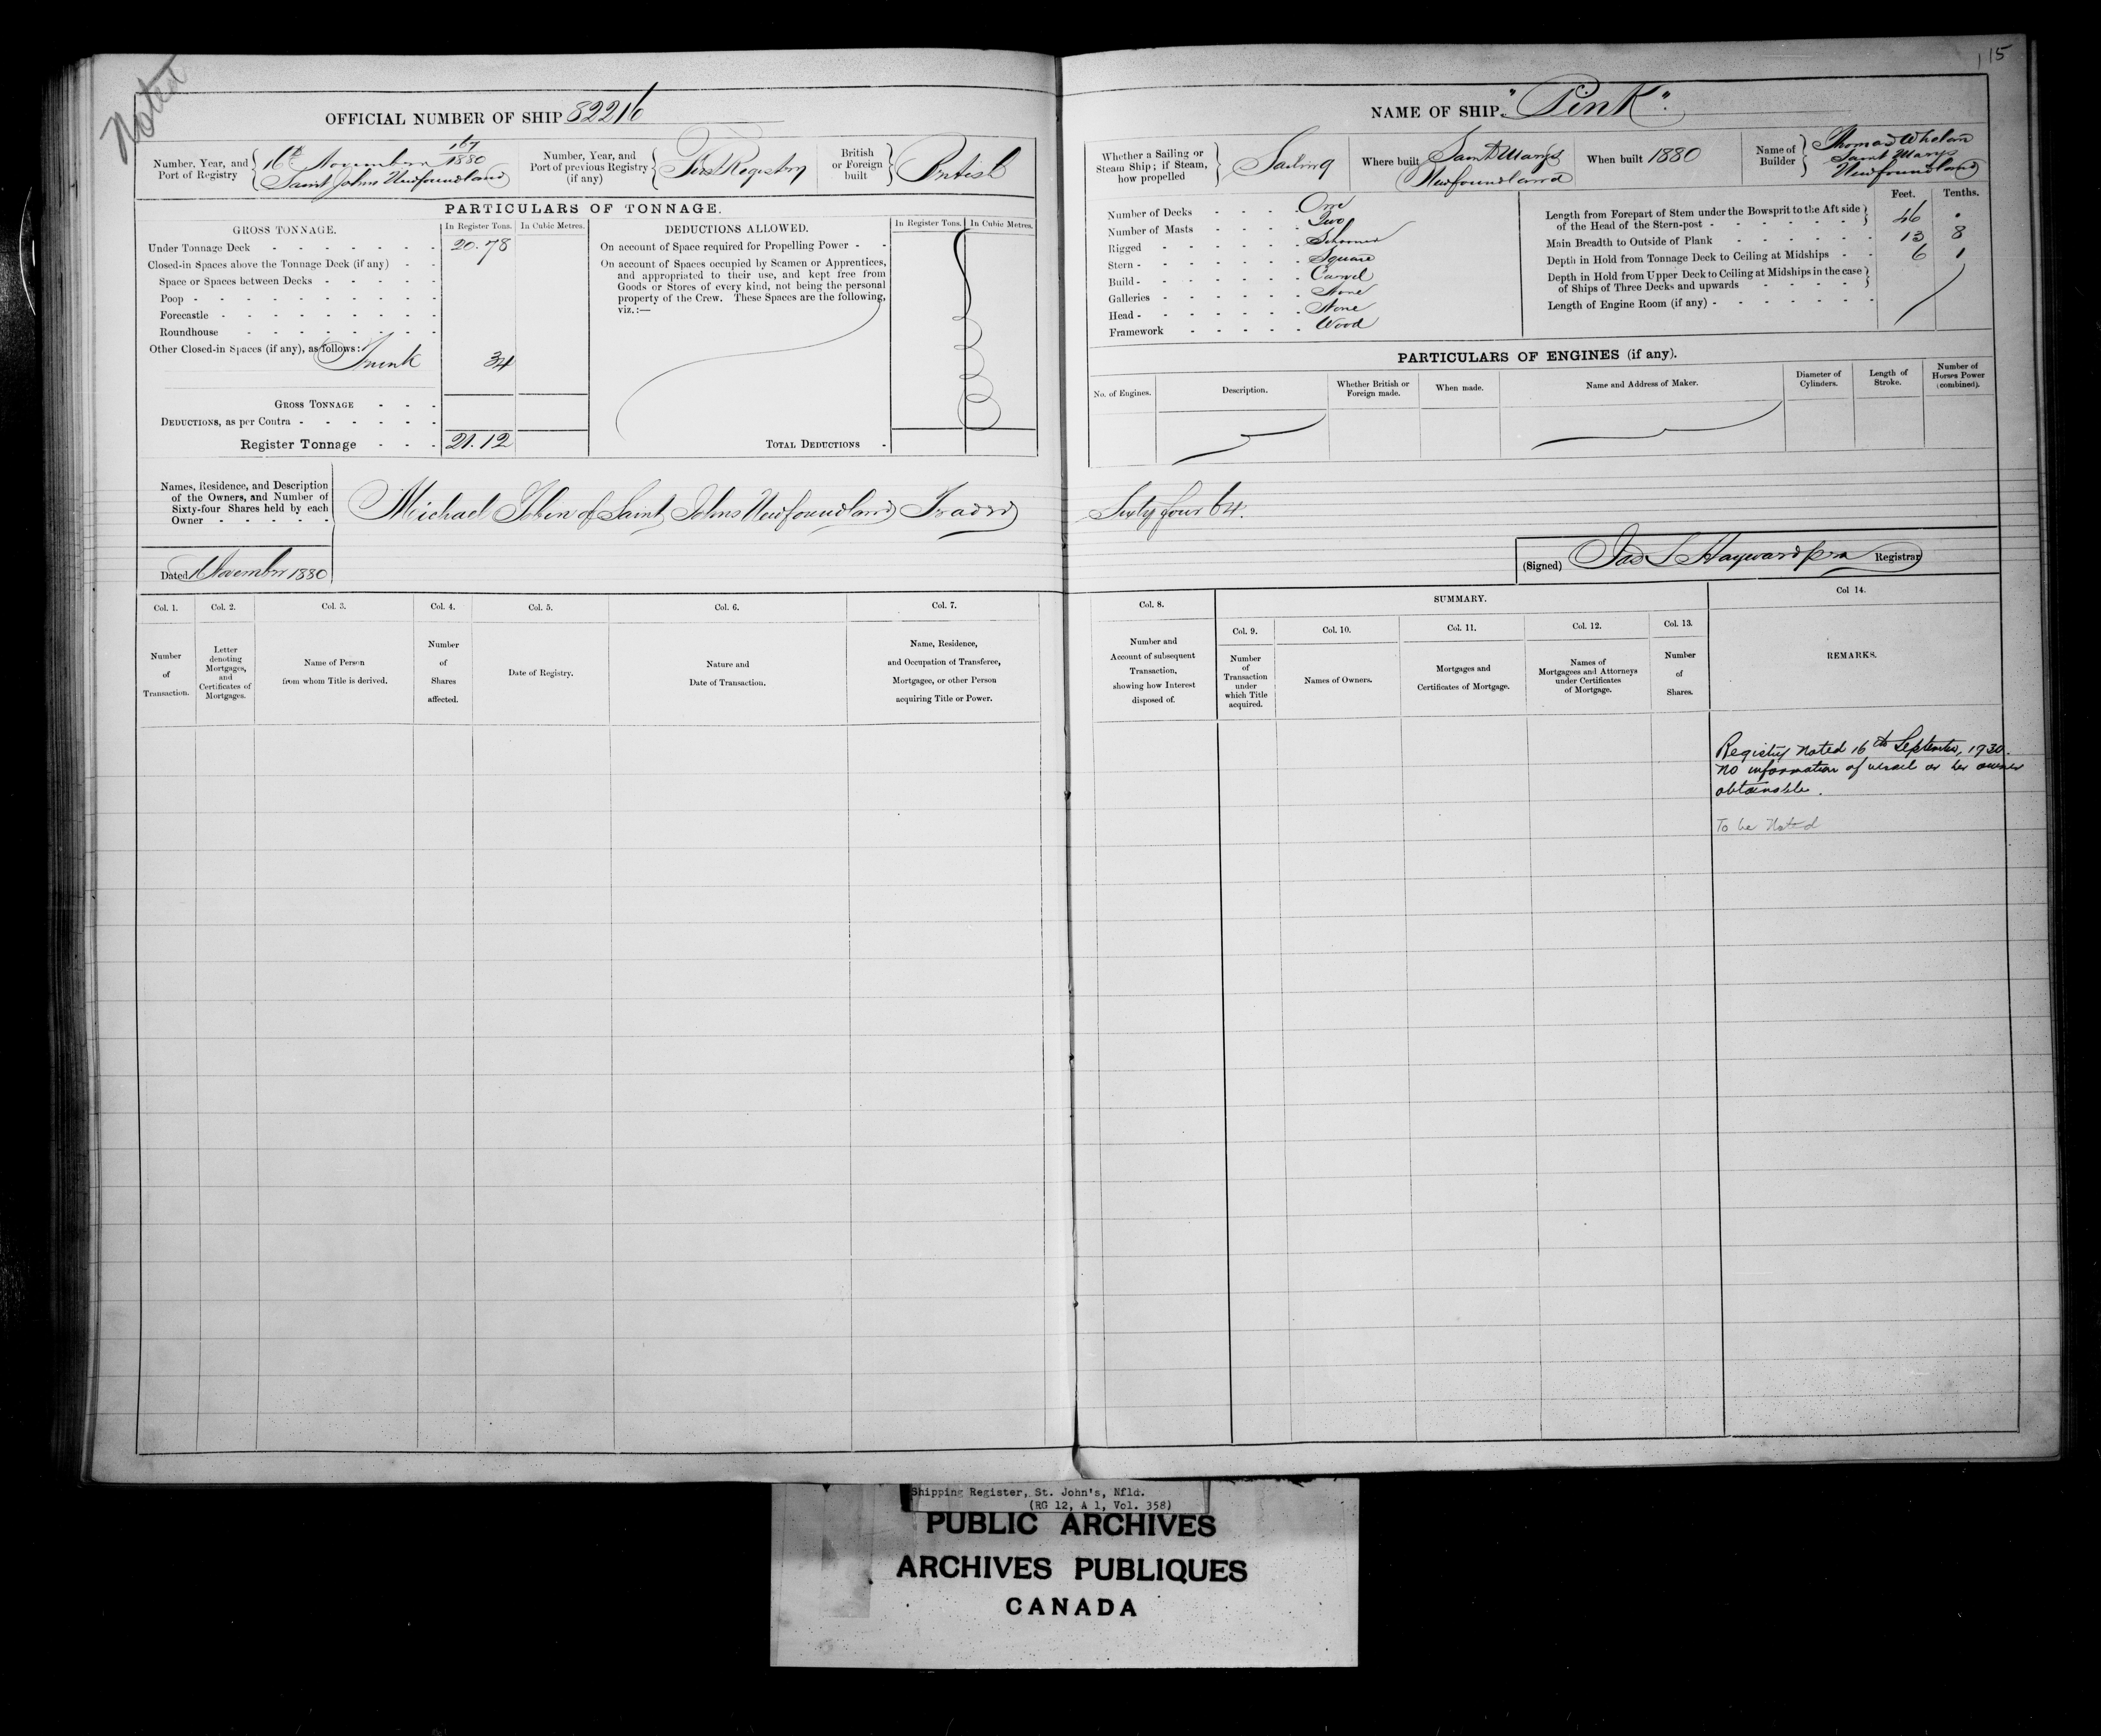 Noted
115
OFFICIAL NUMBER OF SHIP 82216
Number, Year, and Port of Registry
167
16th November 1880
Saint Johns Newfoundland
Number, Year, and Port of previous Registry (if any)
First Registry
British or Foreign built
British
PARTICULARS OF TONNAGE.
GROSS TONNAGE.
In Register Tons.
In Cubic Metres.
Under Tonnage Deck 20.78
Closed-in Spaces above the Tonnage Deck (if any)
Space or Spaces between Decks
Poop
Forecastle
Roundhouse
Other Closed-in Spaces (if any), as follows:
Trunk 34
GROSS TONNAGE
DEDUCTIONS, as per Contra
Register Tonnage 21.12
DEDUCTIONS ALLOWED.
In Register Tons.
In Cubic Metres.
On account of Space required for Propelling Power
On account of Spaces occupied by Seamen or Apprentices,
and appropriated to their use, and kept free from
Goods or Stores of every kind, not being the personal
property of the Crew. These Spaces are the following,
viz.:—
TOTAL DEDUCTIONS
NAME OF SHIP "Pink".
Whether a Sailing or Steam Ship; if Steam, how propelled
Sailing
Where built
Saint Marys
Newfoundland
When built 1880
Name of Builder
Thomas Whelan
Saint Marys
Newfoundland
Number of Decks One
Number of Masts Two
Rigged Schooner
Stern Square
Build Carvel
Galleries None
Head None
Framework Wood
Feet. Tenths.
Length from Forepart of Stem under the Bowsprit to the Aft side
of the Head of the Stern-post 46 .
Main Breadth to Outside of Plank 13 8
Depth in Hold from Tonnage Deck to Ceiling at Midships 6 1
Depth in Hold from Upper Deck to Ceiling at Midships in the case
of Ships of Three Decks and upwards
Length of Engine Room (if any)
PARTICULARS OF ENGINES (if any).
No. of Engines.
Description.
Whether British or Foreign made.
When made.
Name and Address of Maker.
Diameter of Cylinders.
Length of Stroke.
Number of Horses Power (combined).
Names, Residence, and Description
of the Owners, and Number of
Sixty-four Shares held by each
Owner
Michael Tobin of Saint Johns Newfoundland Trader Sixty four 64.
Dated 16 November 1880
(Signed) Jas S Hayward Registrar
Col. 1.
Number of Transaction.
Col. 2.
Letter denoting Mortgages, and Certificates of Mortgages.
Col. 3.
Name of Person from whom Title is derived.
Col. 4.
Number of Shares affected.
Col. 5.
Date of Registry.
Col. 6.
Nature and Date of Transaction.
Col. 7.
Name, Residence, and Occupation of Transferee, Mortgagee, or other Person acquiring Title or Power.
Col. 8.
Number and Account of subsequent Transaction, showing how Interest disposed of.
SUMMARY.
Col. 9.
Number of Transaction under which Title acquired.
Col. 10.
Names of Owners.
Col. 11.
Mortgages and Certificates of Mortgage.
Col. 12.
Names of Mortgagees and Attorneys under Certificates of Mortgage.
Col. 13.
Number of Shares.
Col 14.
REMARKS.
Registry Noted 16th September, 1930.
No information of vessel or her owner
obtainable.
To be Noted
Shipping Register, St. John's, Nfld.
(RG 12, A 1, Vol. 358)
PUBLIC ARCHIVES
ARCHIVES PUBLIQUES
CANADA